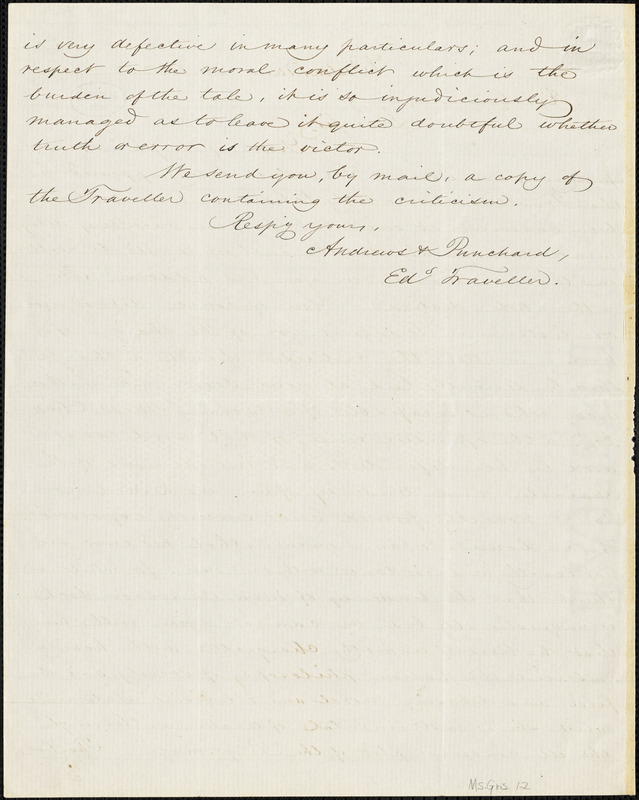 is very defective in many particulars; and in
respect to the moral conflict which is the
burden of the tale, it is so injudiciously
managed as to leave it quite doubtful whether
truth or error is the victor.
We send you, by mail, a copy of
the Traveller containing the criticism.
Respy yours,
Andrews & Punchard,
Eds Traveller.
Ms.Gris 12